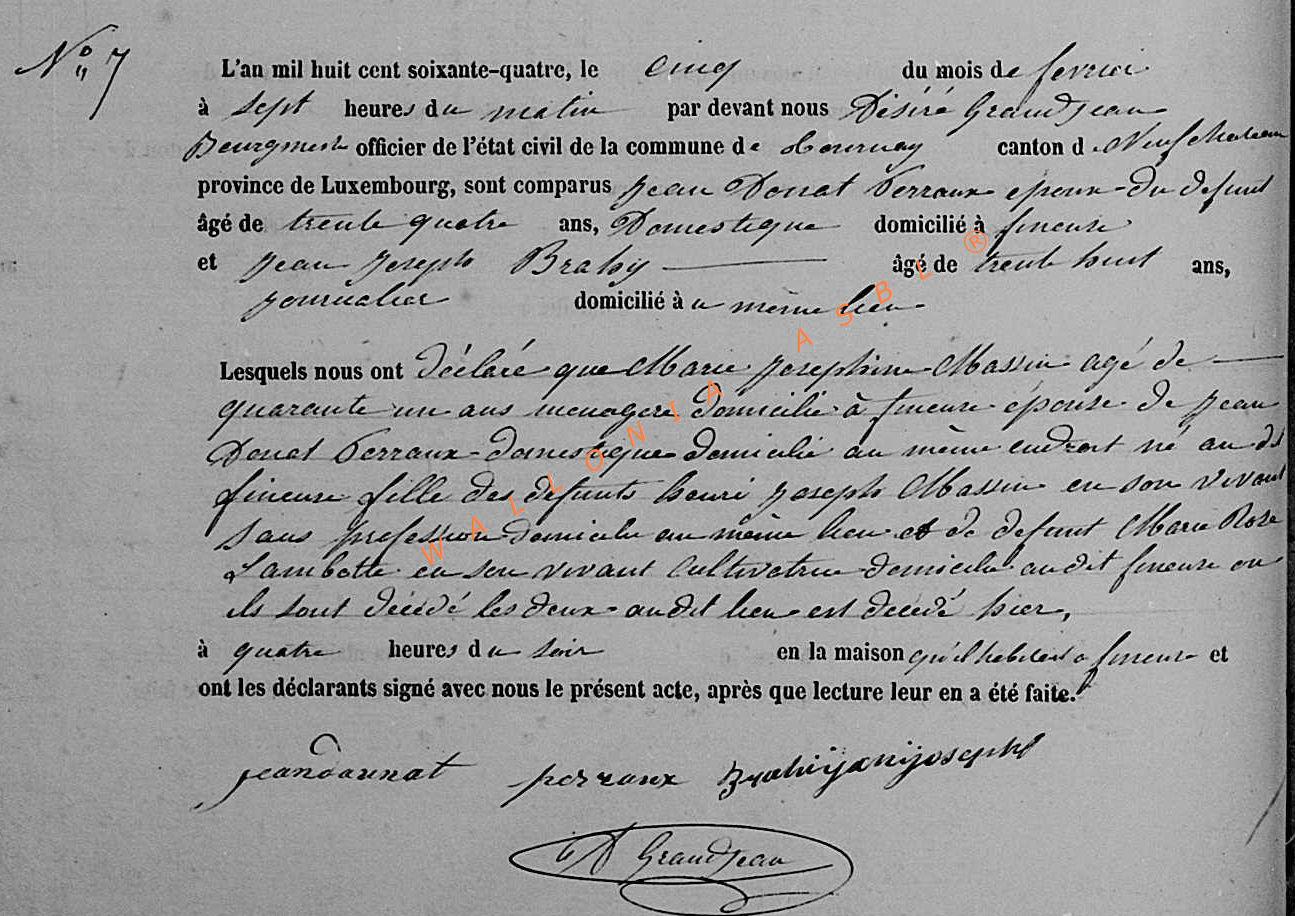 N° 7
L'an mil huit cent soixante-quatre, le cinq du mois de fevrier
à sept heures du matin par devant nous Désiré Grandjean
Bourgmestre officier de l'état civil de la commune de Tournay canton d. Neufchateau
province de Luxembourg, sont comparus Jean Donat Perraux époux du defunt
âgé de trente quatre ans, Domestique domicilié à fineuse
et Jean Joseph Brahy âgé de trente huit ans,
journalier domicilié à u même lieu
Lesquels nous ont déclaré que Marie Josephine Massin agé de
quarante un ans menagere domicilié à fineuse épouse de Jean
Donat Perraux domestique domicilié au même endroit né au dit
fineuse fille des defunts henri Joseph Massin en son vivant
sans profession domicilié au même lieu et de defunt Marie Rose
Lambotte en son vivant Cultivatrice domicilié audit fineuse ou
ils sont décédé les deux audit lieu est decedé hier,
à quatre heures du soir en la maison qu'il habitait a fineuse et
ont les déclarants signé avec nous le présent acte, après que lecture leur en a été faite.
jeandonnat perraux Brahijanijoseph
D Grandjean
WALLONIA ASBL ®